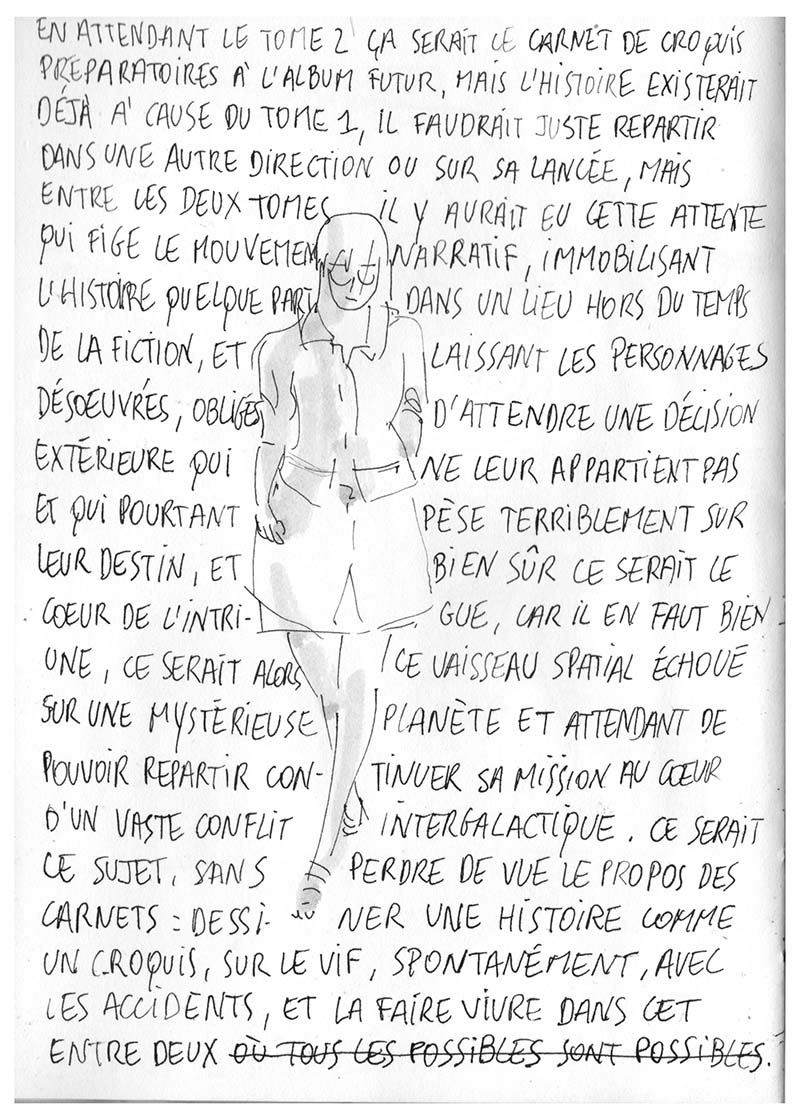 EN ATTENDANT LE TOME 2 ÇA SERAIT LE CARNET DE CROQUIS
PRÉPARATOIRES À L'ALBUM FUTUR, MAIS L'HISTOIRE EXISTERAIT
DÉJÀ À CAUSE DU TOME 1, IL FAUDRAIT JUSTE REPARTIR
DANS UNE AUTRE DIRECTION OU SUR SA LANCÉE, MAIS
ENTRE LES DEUX TOMES IL Y AURAIT EU CETTE ATTENTE
QUI FIGE LE MOUVEMENT NARRATIF, IMMOBILISANT
L'HISTOIRE QUELQUE PART DANS UN LIEU HORS DU TEMPS
DE LA FICTION, ET LAISSANT LES PERSONNAGES
DÉSOEUVRÉS, OBLIGÉS D'ATTENDRE UNE DÉCISION
EXTÉRIEURE QUI NE LEUR APPARTIENT PAS
ET QUI POURTANT PÈSE TERRIBLEMENT SUR
LEUR DESTIN, ET BIEN SÛR CE SERAIT LE
COEUR DE L'INTRI- GUE, CAR IL EN FAUT BIEN
UNE, CE SERAIT ALORS CE VAISSEAU SPATIAL ÉCHOUÉ
SUR UNE MYSTÉRIEUSE PLANÈTE ET ATTENDANT DE
POUVOIR REPARTIR CON- TINUER SA MISSION AU COEUR
D'UN VASTE CONFLIT INTERGALACTIQUE. CE SERAIT
LE SUJET, SANS PERDRE DE VUE LE PROPOS DES
CARNETS : DESSI- NER UNE HISTOIRE COMME
UN CROQUIS, SUR LE VIF, SPONTANÉMENT, AVEC
LES ACCIDENTS, ET LA FAIRE VIVRE DANS CET
ENTRE DEUX OÙ TOUS LES POSSIBLES SONT POSSIBLES.